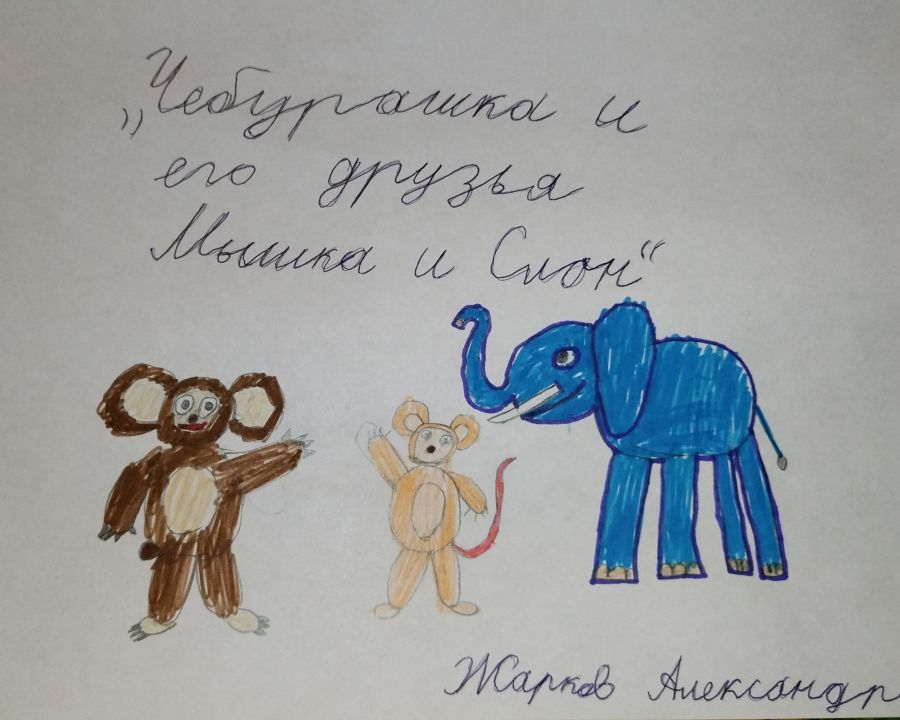 „Чебурашка и
его друзья
Мышка и Слон“
Жарков Александр